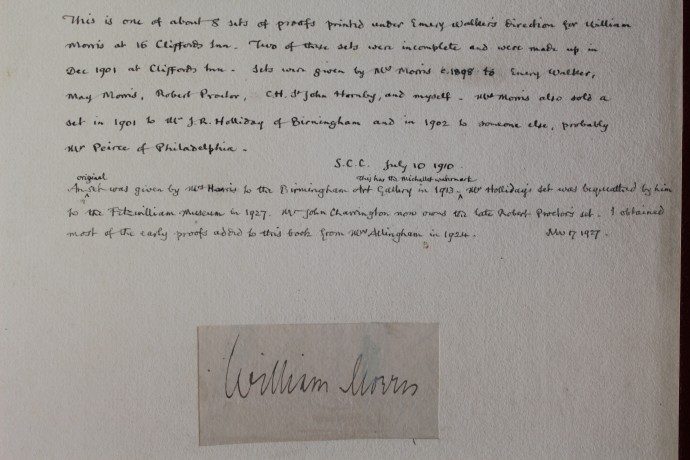 This is one of about 8 sets of proofs printed under Emery Walker's direction for William
Morris at 16 Clifford's Inn. Two of these sets were incomplete and were made up in
Dec 1901 at Clifford's Inn. Sets were given by Mrs Morris c.1898 to Emery Walker,
May Morris, Robert Proctor, C.H. St John Hornby, and myself. Mrs Morris also sold a
set in 1901 to Mr J.R. Holliday of Birmingham and in 1902 to someone else, probably
Mr Peirce of Philadelphia.
S.C.C. July 10 1910.
original
this has the Michallet watermark
An set was given by Mrs Morris to the Birmingham Art Gallery in 1913. Mr Holliday's set was bequeathed by him
to the Fitzwilliam Museum in 1927. Mr John Charrington now owns the late Robert Proctor's set. I obtained
most of the early proofs added to this book from Mrs Allingham in 1924. Nov 17 1927.
William Morris